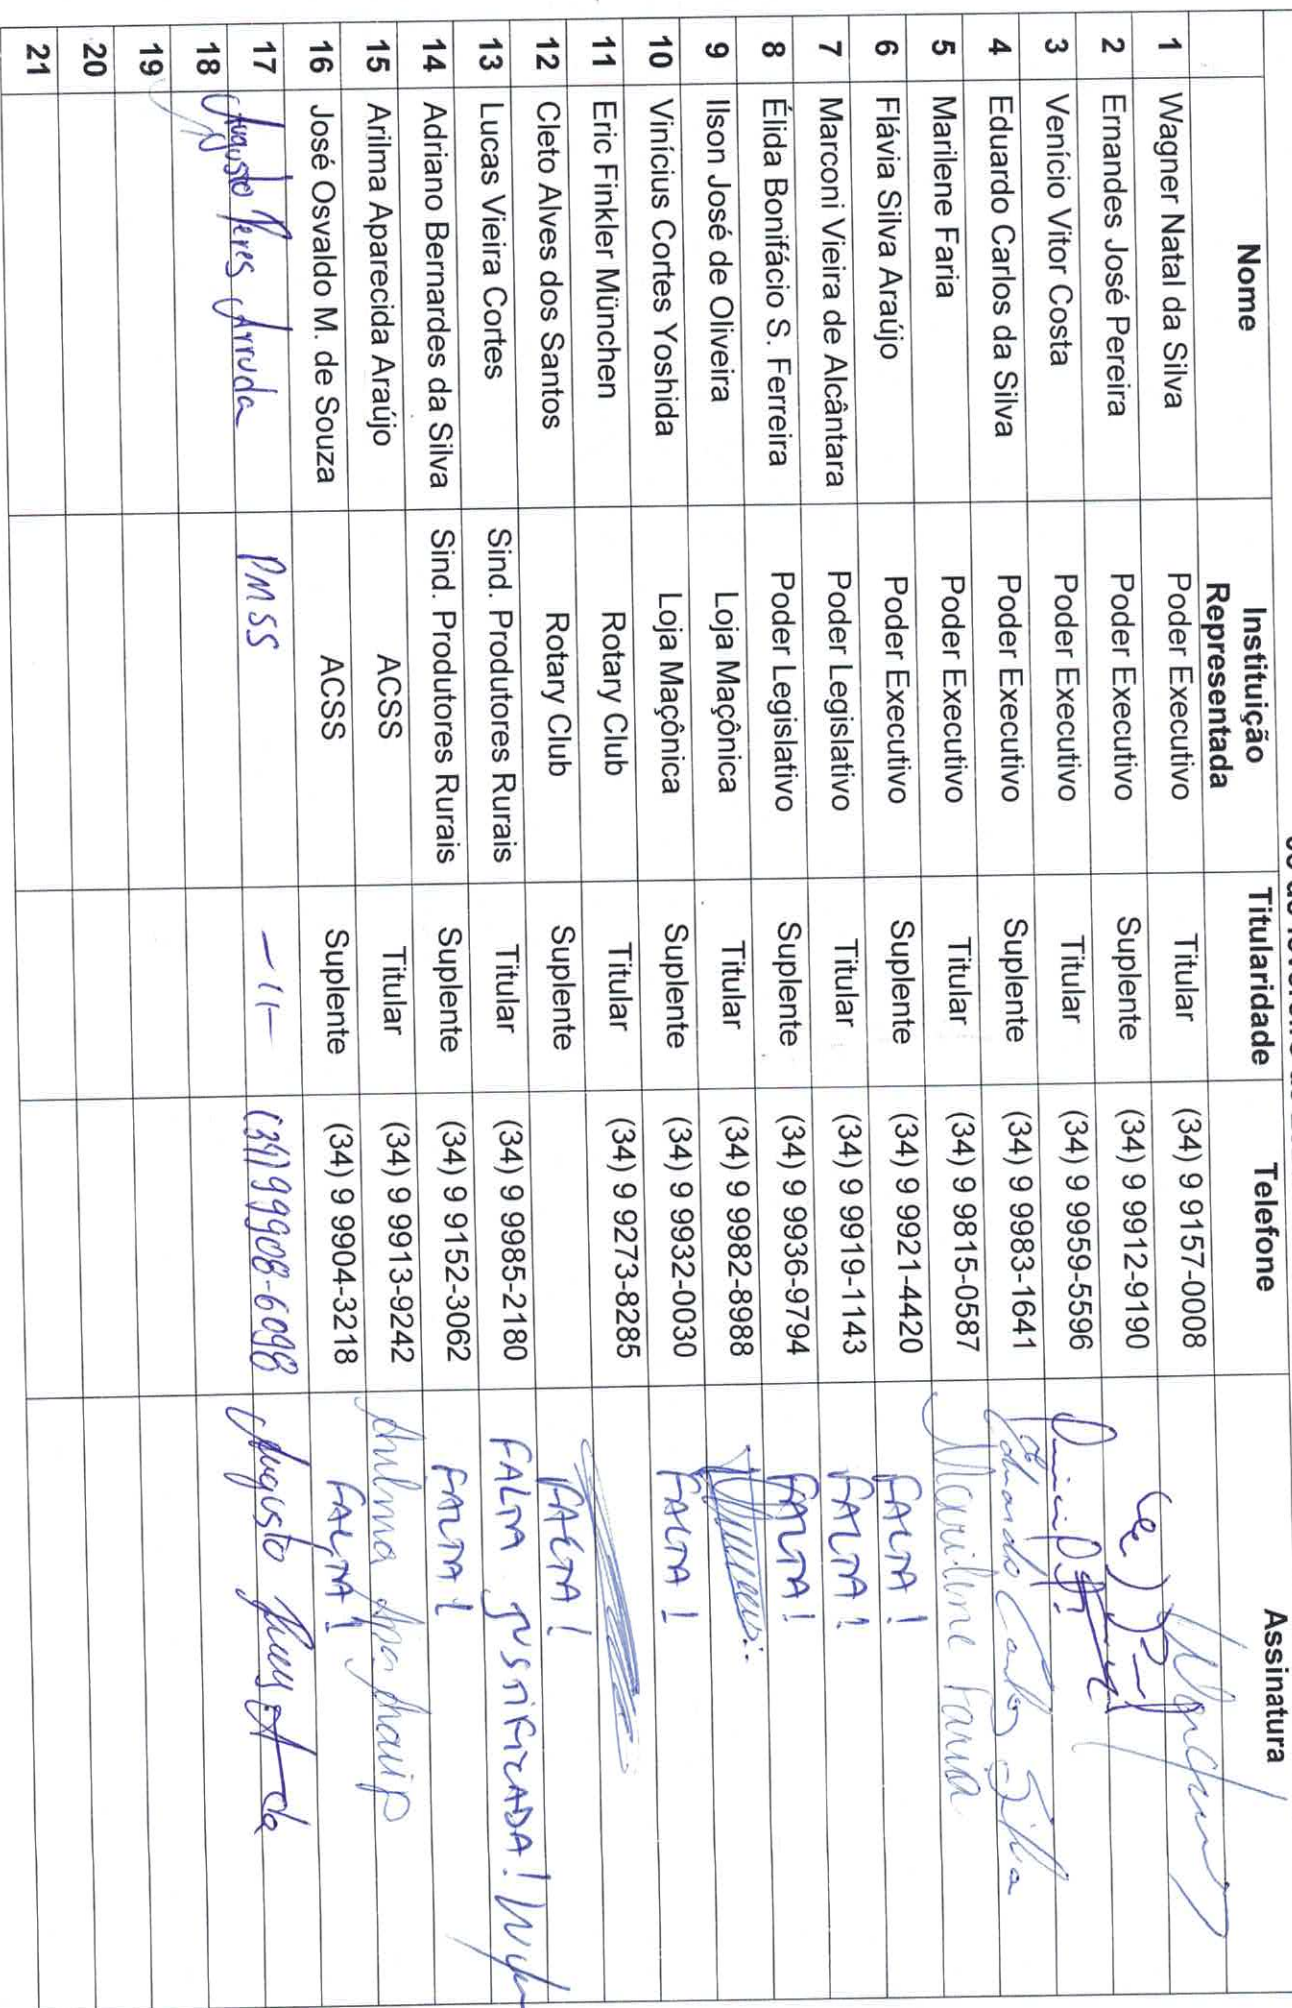 Nome Instituição Representada Titularidade Telefone Assinatura
1 Wagner Natal da Silva Poder Executivo Titular (34) 9 9157-0008
2 Ernandes José Pereira Poder Executivo Suplente (34) 9 9912-9190
3 Venício Vitor Costa Poder Executivo Titular (34) 9 9959-5596
4 Eduardo Carlos da Silva Poder Executivo Suplente (34) 9 9983-1641 Eduardo Carlos Silva
5 Marilene Faria Poder Executivo Titular (34) 9 9815-0587 Marilene Faria
6 Flávia Silva Araújo Poder Executivo Suplente (34) 9 9921-4420 FALTA!
7 Marconi Vieira de Alcântara Poder Legislativo Titular (34) 9 9919-1143 FALTA!
8 Élida Bonifácio S. Ferreira Poder Legislativo Suplente (34) 9 9936-9794 FALTA!
9 Ilson José de Oliveira Loja Maçônica Titular (34) 9 9982-8988
10 Vinícius Cortes Yoshida Loja Maçônica Suplente (34) 9 9932-0030 FALTA!
11 Eric Finkler München Rotary Club Titular (34) 9 9273-8285
12 Cleto Alves dos Santos Rotary Club Suplente FALTA!
13 Lucas Vieira Cortes Sind. Produtores Rurais Titular (34) 9 9985-2180 FALTA JUSTIFICADA!
14 Adriano Bernardes da Silva Sind. Produtores Rurais Suplente (34) 9 9152-3062 FALTA!
15 Arilma Aparecida Araújo ACSS Titular (34) 9 9913-9242 Arilma Apa Araújo
16 José Osvaldo M. de Souza ACSS Suplente (34) 9 9904-3218 FALTA!
17 Augusto Peres Arruda PMSS -11- (34) 99908-6098 Augusto Peres
18
19
20
21